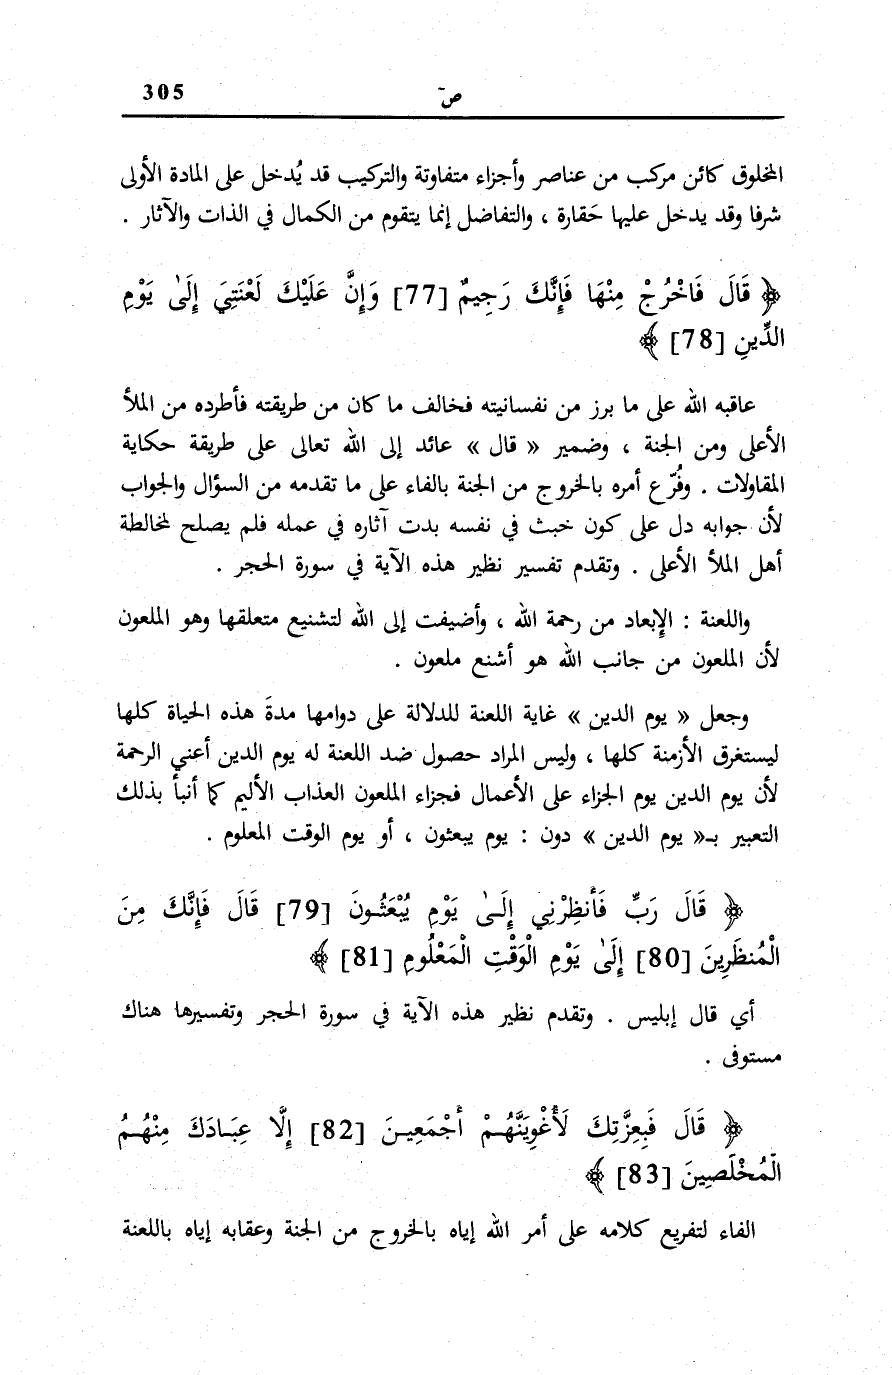 305
صۤ
المخلوق كائن مركب من عناصر وأجزاء متفاوتة والتركيب قد يُدخل على المادة الأولى
شرفا وقد يدخل عليها حَقارة ، والتفاضل إنما يتقوم من الكمال في الذات والآثار .
﴿ قَالَ فَاخْرُجْ مِنْهَا فَإِنَّكَ رَجِيمٌ [77] وَإِنَّ عَلَيْكَ لَعْنَتِيَ إِلَىٰ يَوْمِ
الدِّينِ [78] ﴾
عاقبه الله على ما برز من نفسانيته فخالف ما كان من طريقته فأطرده من الملأ
الأعلى ومن الجنة ، وضمير « قال » عائد إلى الله تعالى على طريقة حكاية
المقاولات . وفُرّع أمره بالخروج من الجنة بالفاء على ما تقدمه من السؤال والجواب
لأن جوابه دل على كون خبث في نفسه بدت آثاره في عمله فلم يصلح لمخالطة
أهل الملأ الأعلى . وتقدم تفسير نظير هذه الآية في سورة الحجر .
واللعنة : الإبعاد من رحمة الله ، وأضيفت إلى الله لتشنيع متعلقها وهو الملعون
لأن الملعون من جانب الله هو أشنع ملعون .
وجعل « يوم الدين » غاية اللعنة للدلالة على دوامها مدةَ هذه الحياة كلها
ليستغرق الأزمنة كلها ، وليس المراد حصول ضد اللعنة له يوم الدين أعني الرحمة
لأن يوم الدين يوم الجزاء على الأعمال فجزاء الملعون العذاب الأليم كما أنبأ بذلك
التعبير بـ« يوم الدين » دون : يوم يبعثون ، أو يوم الوقت المعلوم .
﴿ قَالَ رَبِّ فَأَنظِرْنِي إِلَىٰ يَوْمِ يُبْعَثُونَ [79] قَالَ فَإِنَّكَ مِنَ
الْمُنظَرِينَ [80] إِلَىٰ يَوْمِ الْوَقْتِ الْمَعْلُومِ [81] ﴾
أي قال إبليس . وتقدم نظير هذه الآية في سورة الحجر وتفسيرها هناك
مستوفى .
﴿ قَالَ فَبِعِزَّتِكَ لَأُغْوِيَنَّهُمْ أَجْمَعِينَ [82] إِلَّا عِبَادَكَ مِنْهُمُ
الْمُخْلَصِينَ [83] ﴾
الفاء لتفريع كلامه على أمر الله إياه بالخروج من الجنة وعقابه إياه باللعنة